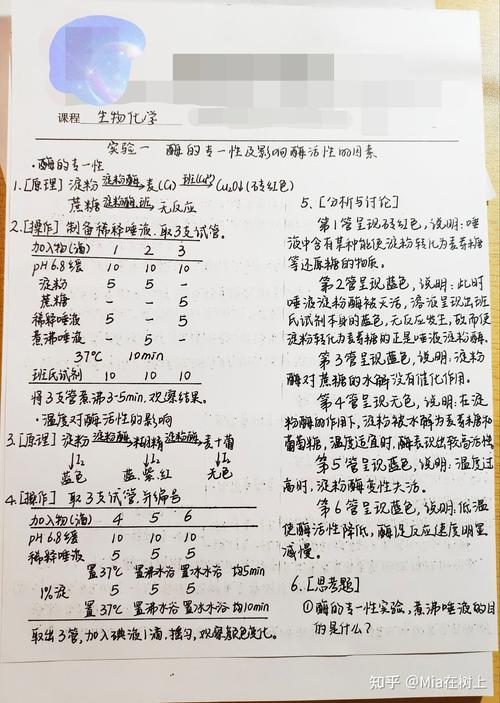 课程 生物化学
实验一 酶的专一性及影响酶活性的因素
·酶的专一性
1.[原理] 淀粉 淀粉酶→ 麦(G) 班(Cu²⁺)→ Cu₂O↓(砖红色)
蔗糖 淀粉酶、班→ 无反应
2.[操作] 制备稀释唾液。取3支试管。
加入物(滴) 1 2 3
pH6.8缓 10 10 10
淀粉 5 5 -
蔗糖 - - 5
稀释唾液 5 - 5
煮沸唾液 - 5 -
37℃ 10min
班氏试剂 10 10 10
将3支管煮沸3-5min,观察结果。
·温度对酶活性的影响
3.[原理] 淀粉 淀粉酶→ 糊精 淀粉酶→ 麦+葡
↓I₂ ↓I₂ ↓I₂
蓝色 蓝.紫.红 无色
4.[操作] 取3支试管,并编号
加入物(滴) 4 5 6
pH6.8缓 10 10 10
稀释唾液 5 5 5
置37℃ 置沸水浴 置冰水浴 均5min
1%淀 5 5 5
置37℃ 置沸水浴 置冰水浴 均10min
取出3管,加入碘液1滴,摇匀,观察颜色变化。
5.[分析与讨论]
第1管呈现砖红色,说明:唾
液中含有某种能使淀粉转化为麦芽糖
等还原糖的物质。
第2管呈现蓝色,说明:此时
唾液淀粉酶被灭活,溶液呈现出班
氏试剂本身的蓝色,无反应发生,故而使
淀粉转化为麦芽糖的正是唾液淀粉酶。
第3管呈现蓝色,说明:淀粉
酶对蔗糖的水解没有催化作用。
第4管呈现无色,说明:在淀
粉酶的作用下,淀粉被水解为麦芽糖和
葡萄糖,温度适宜时,酶表现出较高活性。
第5管呈现蓝色,说明:温度过
高时,淀粉酶变性失活。
第6管呈现蓝色,说明:低温
使酶活性降低,酶促反应速度明显
减慢。
6.[思考题]
①酶的专一性实验,煮沸唾液的目
的是什么?
知乎 @Mia在树上